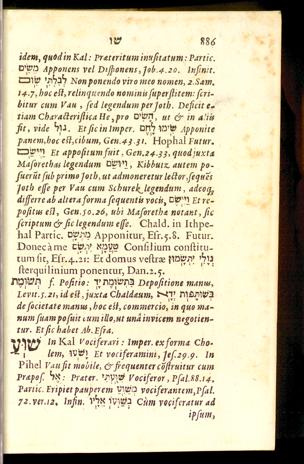 שו 886
idem, quod in Kal: Præteritum inusitatum: Partic.
מֵשִׂים Apponens vel Disponens, Job. 4. 20. Infinit.
לְבִלְתִּי שׂוּם Non ponendo viro meo nomen, 2. Sam.
14. 7, hoc est, relinquendo nominis superstitem: scri-
bitur cum Vau, sed legendum per Joth. Deficit e-
tiam Characteristica He, pro הָשִׂים, ut & in aliis
fit, vide נול. Et sic in Imper. שִׂימוּ לָחֶם Apponite
panem, hoc est, cibum, Gen. 43. 31. Hophal Futur.
וַיּוּשַׂם Et appositum fuit, Gen. 24. 33, quod juxta
Masorethas legendum וַיּוּשַׂם, Kibbutz. autem po-
suerūt sub primo Joth, ut admoneretur lector, sequēs
Joth esse per Vau cum Schurek legendum, adeoq,
differre ab altera forma sequentis vocis, וַיִּישֶׂם Et re-
positus est, Gen. 50. 26, ubi Masoretha notant, sic
scriptum & sic legendum esse. Chald. in Ithpe-
hal Partic. מִתְּשָׂם Apponitur, Esr. 5. 8. Futur.
Donec à me טַעְמָא יִתְּשָׂם Consilium constitu-
tum sit, Esr. 4. 21: Et domus vestræ נְוָלִי יִתְּשָׂמוּן
sterquilinium ponentur, Dan. 2. 5.
תְּשׂוּמֶת f. Positio: בִתְשׂוּמֶת יָד Depositione manus,
Levit. 5. 21, id est, juxta Chaldæum, בְּשׁוּתָפוּת יְדָא
de societate manus, hoc est, commercio, in quo ma-
num suam posuit cum illo, ut unà invicem negotien-
tur. Et sic habet Ab. Esra.
שׁוּעַ In Kal Vociferari: Imper. ex forma Cho-
lem, שׁוֹעוּ Et vociferamini, Jes. 29. 9. In
Pihel Vau fit mobile, & frequenter cōstruitur cum
Præpos. אֶל: Præter. שִׁוַּעְתִּי Vociferor, Psal. 88. 14.
Partic. Eripiet pauperem מְשַׁוֵּעַ vociferantem, Psal.
72. ver. 12. Infin. בְּשַׁוְּעוֹ אֵלָיו Cùm vociferatur ad
ipsum,